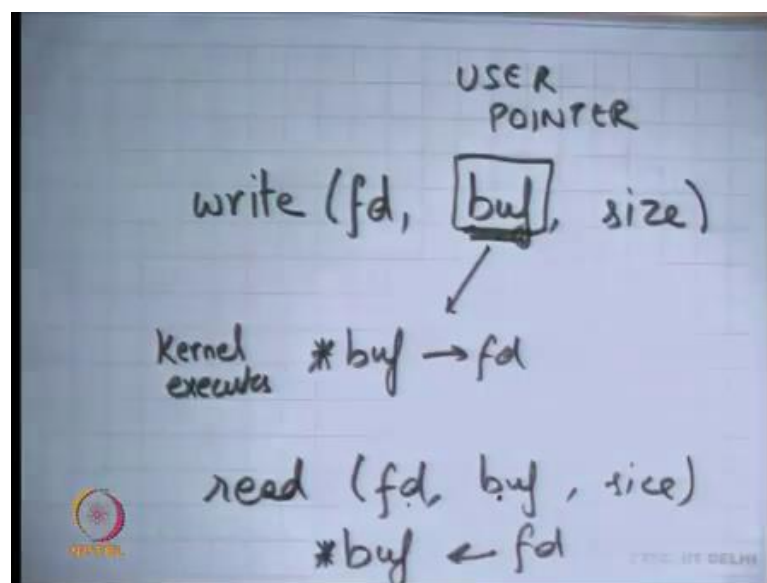 USER
POINTER
write (fd, buf, size)
Kernel
executes
*buf → fd
read (fd, buf, size)
*buf ← fd
NPTEL
ETSC, IIT DELHI